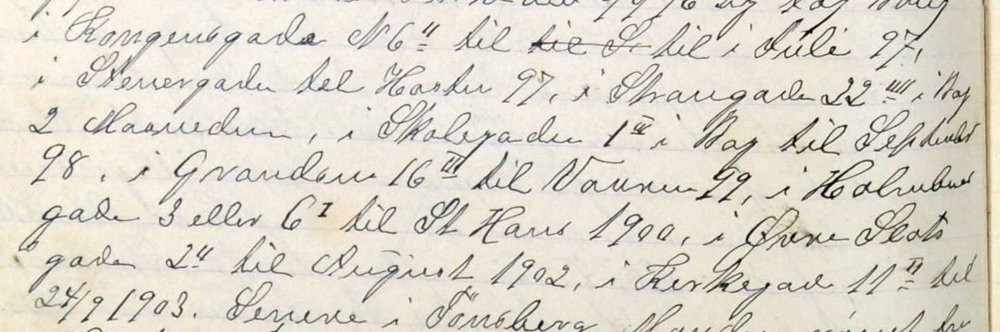 i Kongensgade N 6 II til til S til i Juli 97,
i Stenersgaden til Høsten 97, i Strangaden 22 IIII i Bag
2 Maaneder, i Skolegaden 1 III i Bag til September
98, i Grændsen 16 III til Vaaren 99, i Holmens
gade 3 eller 6 I til St Hans 1900, i Øvre Slots
gade 2 II til August 1902, i Kirkegad 11 II til
24/9 1903. Senere i Tönsberg